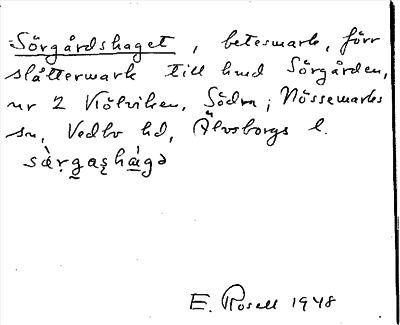 Sörgårdshaget, betesmark, förr
slåttermark till hmd Sörgården,
nr 2 Kölviken, Södra; Nössemarks
sn, Vedbo hd, Älvsborgs l.
E. Rosell 1948